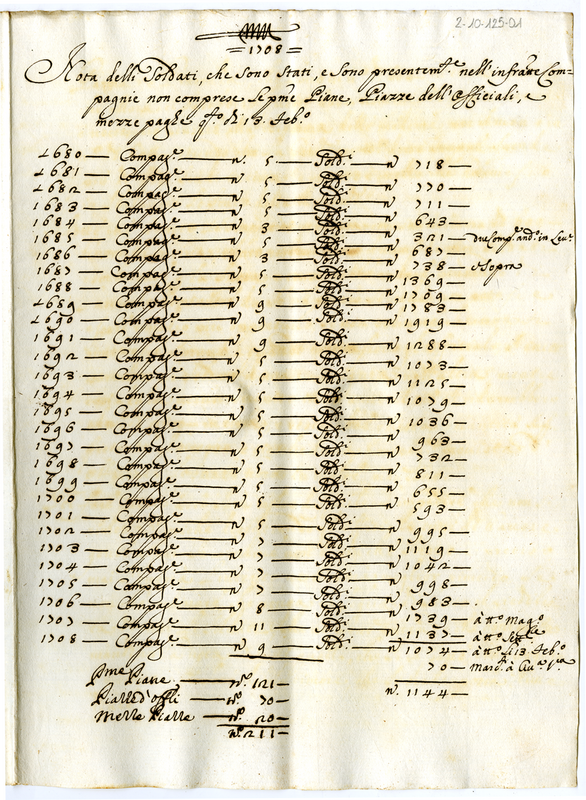 1708
Nota delli Soldati, che sono stati, e sono presentem.te nell'infratte Com-
pagnie non comprese le p.me Piane, Piazze dell'Officiali, e
mezze paghe di 13. feb.o
1680 — Compag.e — n. 5 — Sold: — n 718 —
1681 — Compag.e — n 5 — Sold: — n 770 —
1682 — Compag.e — n 5 — Sold: — n 711 —
1683 — Compag.e — n 5 — Sold: — n 643 —
1684 — Compag.e — n 3 — Sold: — n 321 — due Comp.e and.e in Lev.e
1685 — Compag.e — n 5 — Sold: — n 687 —
1686 — Compag.e — n 3 — Sold: — n 738 — e Sopra
1687 — Compag.e — n 5 — Sold: — n 1369 —
1688 — Compag.e — n 5 — Sold: — n 1769 —
1689 — Compag.e — n 9 — Sold: — n 1783 —
1690 — Compag.e — n 9 — Sold: — n 1919 —
1691 — Compag.e — n 9 — Sold: — n 1288 —
1692 — Compag.e — n 5 — Sold: — n 1073 —
1693 — Compag.e — n 5 — Sold: — n 1125 —
1694 — Compag.e — n 5 — Sold: — n 1079 —
1695 — Compag.e — n 5 — Sold: — n 1036 —
1696 — Compag.e — n 5 — Sold: — n 963 —
1697 — Compag.e — n 5 — Sold: — n 732 —
1698 — Compag.e — n 5 — Sold: — n 811 —
1699 — Compag.e — n 5 — Sold: — n 655 —
1700 — Compag.e — n 5 — Sold: — n 593 —
1701 — Compag.e — n 5 — Sold: — n 995 —
1702 — Compag.e — n 7 — Sold: — n 1119 —
1703 — Compag.e — n 7 — Sold: — n 1042 —
1704 — Compag.e — n 7 — Sold: — n 998 —
1705 — Compag.e — n 7 — Sold: — n 983 —
1706 — Compag.e — n 8 — Sold: — n 1739 — à tt.o Mag.o
1707 — Compag.e — n 11 — Sold: — n 1137 — à tt.o
1708 — Compag.e — n 9 — Sold: — n 1074 — à tt.o li 13. feb.o
70 —
P.me Piane — n.o 121 —
n. 1144 —
Piazze d'offli — n.o 70 —
Mezze Piazze — n.o 20 —
n.o 211 —
2-10-125-01